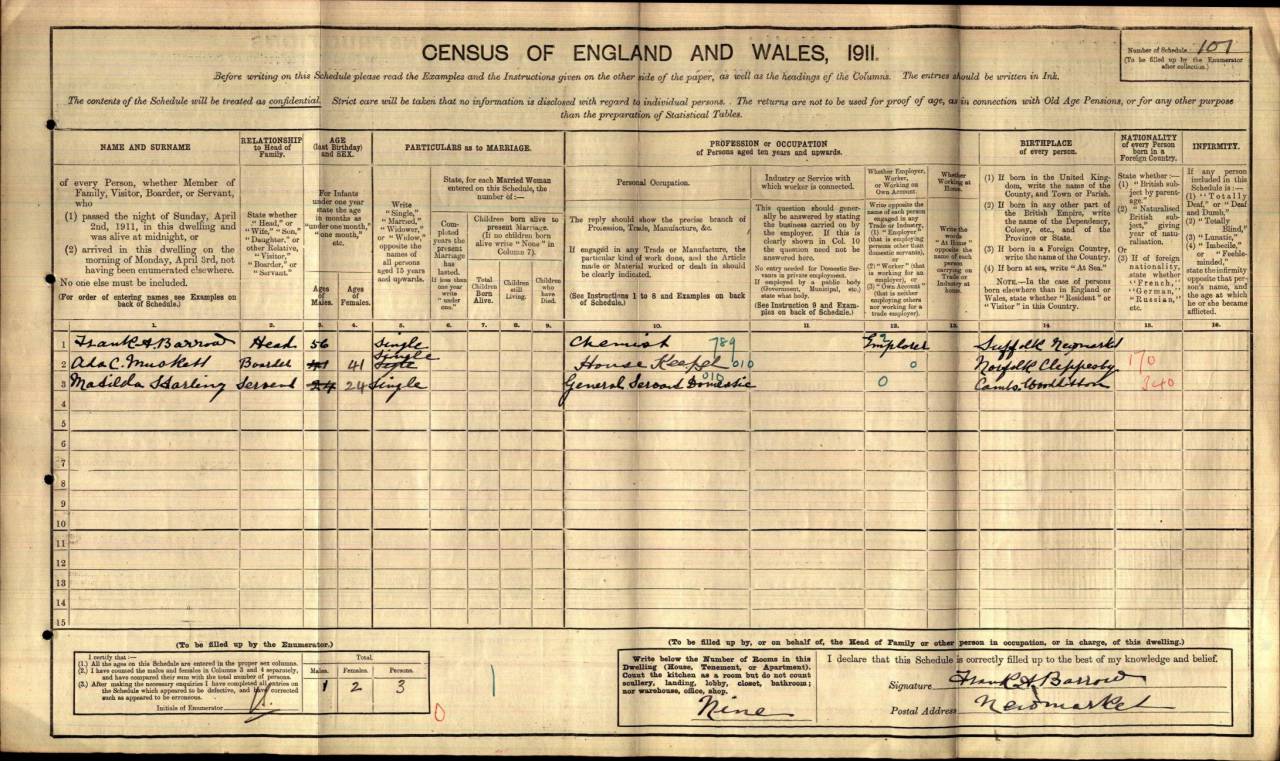 CENSUS OF ENGLAND AND WALES, 1911.
Number of Schedule 101
(To be filled up by the Enumerator after collection.)
Before writing on this Schedule please read the Examples and the Instructions given on the other side of the paper, as well as the headings of the Columns. The entries should be written in Ink.
The contents of the Schedule will be treated as confidential. Strict care will be taken that no information is disclosed with regard to individual persons. The returns are not to be used for proof of age, as in connection with Old Age Pensions, or for any other purpose
than the preparation of Statistical Tables.
NAME AND SURNAME
of every Person, whether Member of
Family, Visitor, Boarder, or Servant,
who
(1) passed the night of Sunday, April
2nd, 1911, in this dwelling and
was alive at midnight, or
(2) arrived in this dwelling on the
morning of Monday, April 3rd, not
having been enumerated elsewhere.
No one else must be included.
(For order of entering names see Examples on
back of Schedule.)
RELATIONSHIP
to Head of
Family.
State whether
"Head," or
"Wife," "Son,"
"Daughter," or
other Relative,
"Visitor,"
"Boarder," or
"Servant."
AGE
(last Birthday)
and SEX.
For Infants
under one year
state the age
in months as
"under one month,"
"one month,"
etc.
Ages of Males.
Ages of Females.
PARTICULARS as to MARRIAGE.
Write
"Single,"
"Married,"
"Widower,"
or "Widow,"
opposite the
names of
all persons
aged 15 years
and upwards.
State, for each Married Woman
entered on this Schedule, the
number of:—
Completed
years the
present
Marriage
has
lasted.
If less than
one year
write
"under
one."
Children born alive to
present Marriage.
(If no children born
alive write "None" in
Column 7).
Total Children Born Alive.
Children still Living.
Children who have Died.
PROFESSION or OCCUPATION
of Persons aged ten years and upwards.
Personal Occupation.
The reply should show the precise branch of
Profession, Trade, Manufacture, &c.
If engaged in any Trade or Manufacture, the
particular kind of work done, and the Article
made or Material worked or dealt in should
be clearly indicated.
(See Instructions 1 to 8 and Examples on back
of Schedule.)
Industry or Service with
which worker is connected.
This question should generally
be answered by stating
the business carried on
by the employer. If this is
clearly shown in Col. 10
the question need not be
answered here.
No entry needed for Domestic Servants
in private employment.
If employed by a public body
(Government, Municipal, etc.)
state what body.
(See Instruction 9 and Examples
on back of Schedule.)
Whether Employer,
Worker,
or Working on
Own Account.
Write opposite the
name of each person
engaged in any
Trade or Industry,
(1) "Employer"
(that is employing
persons other than
domestic servants),
or
(2) "Worker" (that
is working for an
employer), or
(3) "Own Account"
(that is neither
employing others
nor working for a
trade employer).
Whether
Working at
Home.
Write the
words
"At Home"
opposite the
name of each
person
carrying on
Trade or
Industry at
home.
BIRTHPLACE
of every person.
(1) If born in the United Kingdom,
write the name of the
County, and Town or Parish.
(2) If born in any other part of
the British Empire, write
the name of the Dependency,
Colony, etc., and of the
Province or State.
(3) If born in a Foreign Country,
write the name of the Country.
(4) If born at sea, write "At Sea."
NOTE.—In the case of persons
born elsewhere than in England or
Wales, state whether "Resident" or
"Visitor" in this Country.
NATIONALITY
of every Person
born in a
Foreign Country.
State whether:—
(1) "British subject
by parentage."
(2) "Naturalised
British subject,"
giving
year of naturalisation.
Or
(3) If of foreign
nationality,
state whether
"French,"
"German,"
"Russian,"
etc.
INFIRMITY.
If any person
included in this
Schedule is:—
(1) "Totally
Deaf," or "Deaf
and Dumb,"
(2) "Totally
Blind,"
(3) "Lunatic,"
(4) "Imbecile,"
or "Feeble-
minded,"
state the infirmity
opposite that person's
name, and
the age at which
he or she became
afflicted.
1. 2. 3. 4. 5. 6. 7. 8. 9. 10. 11. 12. 13. 14. 15. 16.
1 Frank A Barrow Head 56 Single Chemist 789 Employer 2 Suffolk Newmarket
2 Ada C. Muskett Boarder 41 Single House Keeper 010 0 Norfolk Clippesby 170
3 Matilda Starling Servant 24 24 Single General Servant Domestic 010 0 Cambs. Woodditton 340
4
5
6
7
8
9
10
11
12
13
14
15
(To be filled up by the Enumerator.)
I certify that:—
(1.) All the ages on this Schedule are entered in the proper sex columns.
(2.) I have counted the males and females in Columns 3 and 4 separately,
and have compared their sum with the total number of persons.
(3.) After making the necessary enquiries I have completed all entries on
the Schedule which appeared to be defective, and have corrected
such as appeared to be erroneous.
Initials of Enumerator
Total.
Males. Females. Persons.
1 2 3
0
(To be filled up by, or on behalf of, the Head of Family or other person in occupation, or in charge, of this dwelling.)
Write below the Number of Rooms in this
Dwelling (House, Tenement, or Apartment).
Count the kitchen as a room but do not count
scullery, landing, lobby, closet, bathroom;
nor warehouse, office, shop.
Nine
I declare that this Schedule is correctly filled up to the best of my knowledge and belief.
Signature Frank A Barrow
Postal Address Newmarket